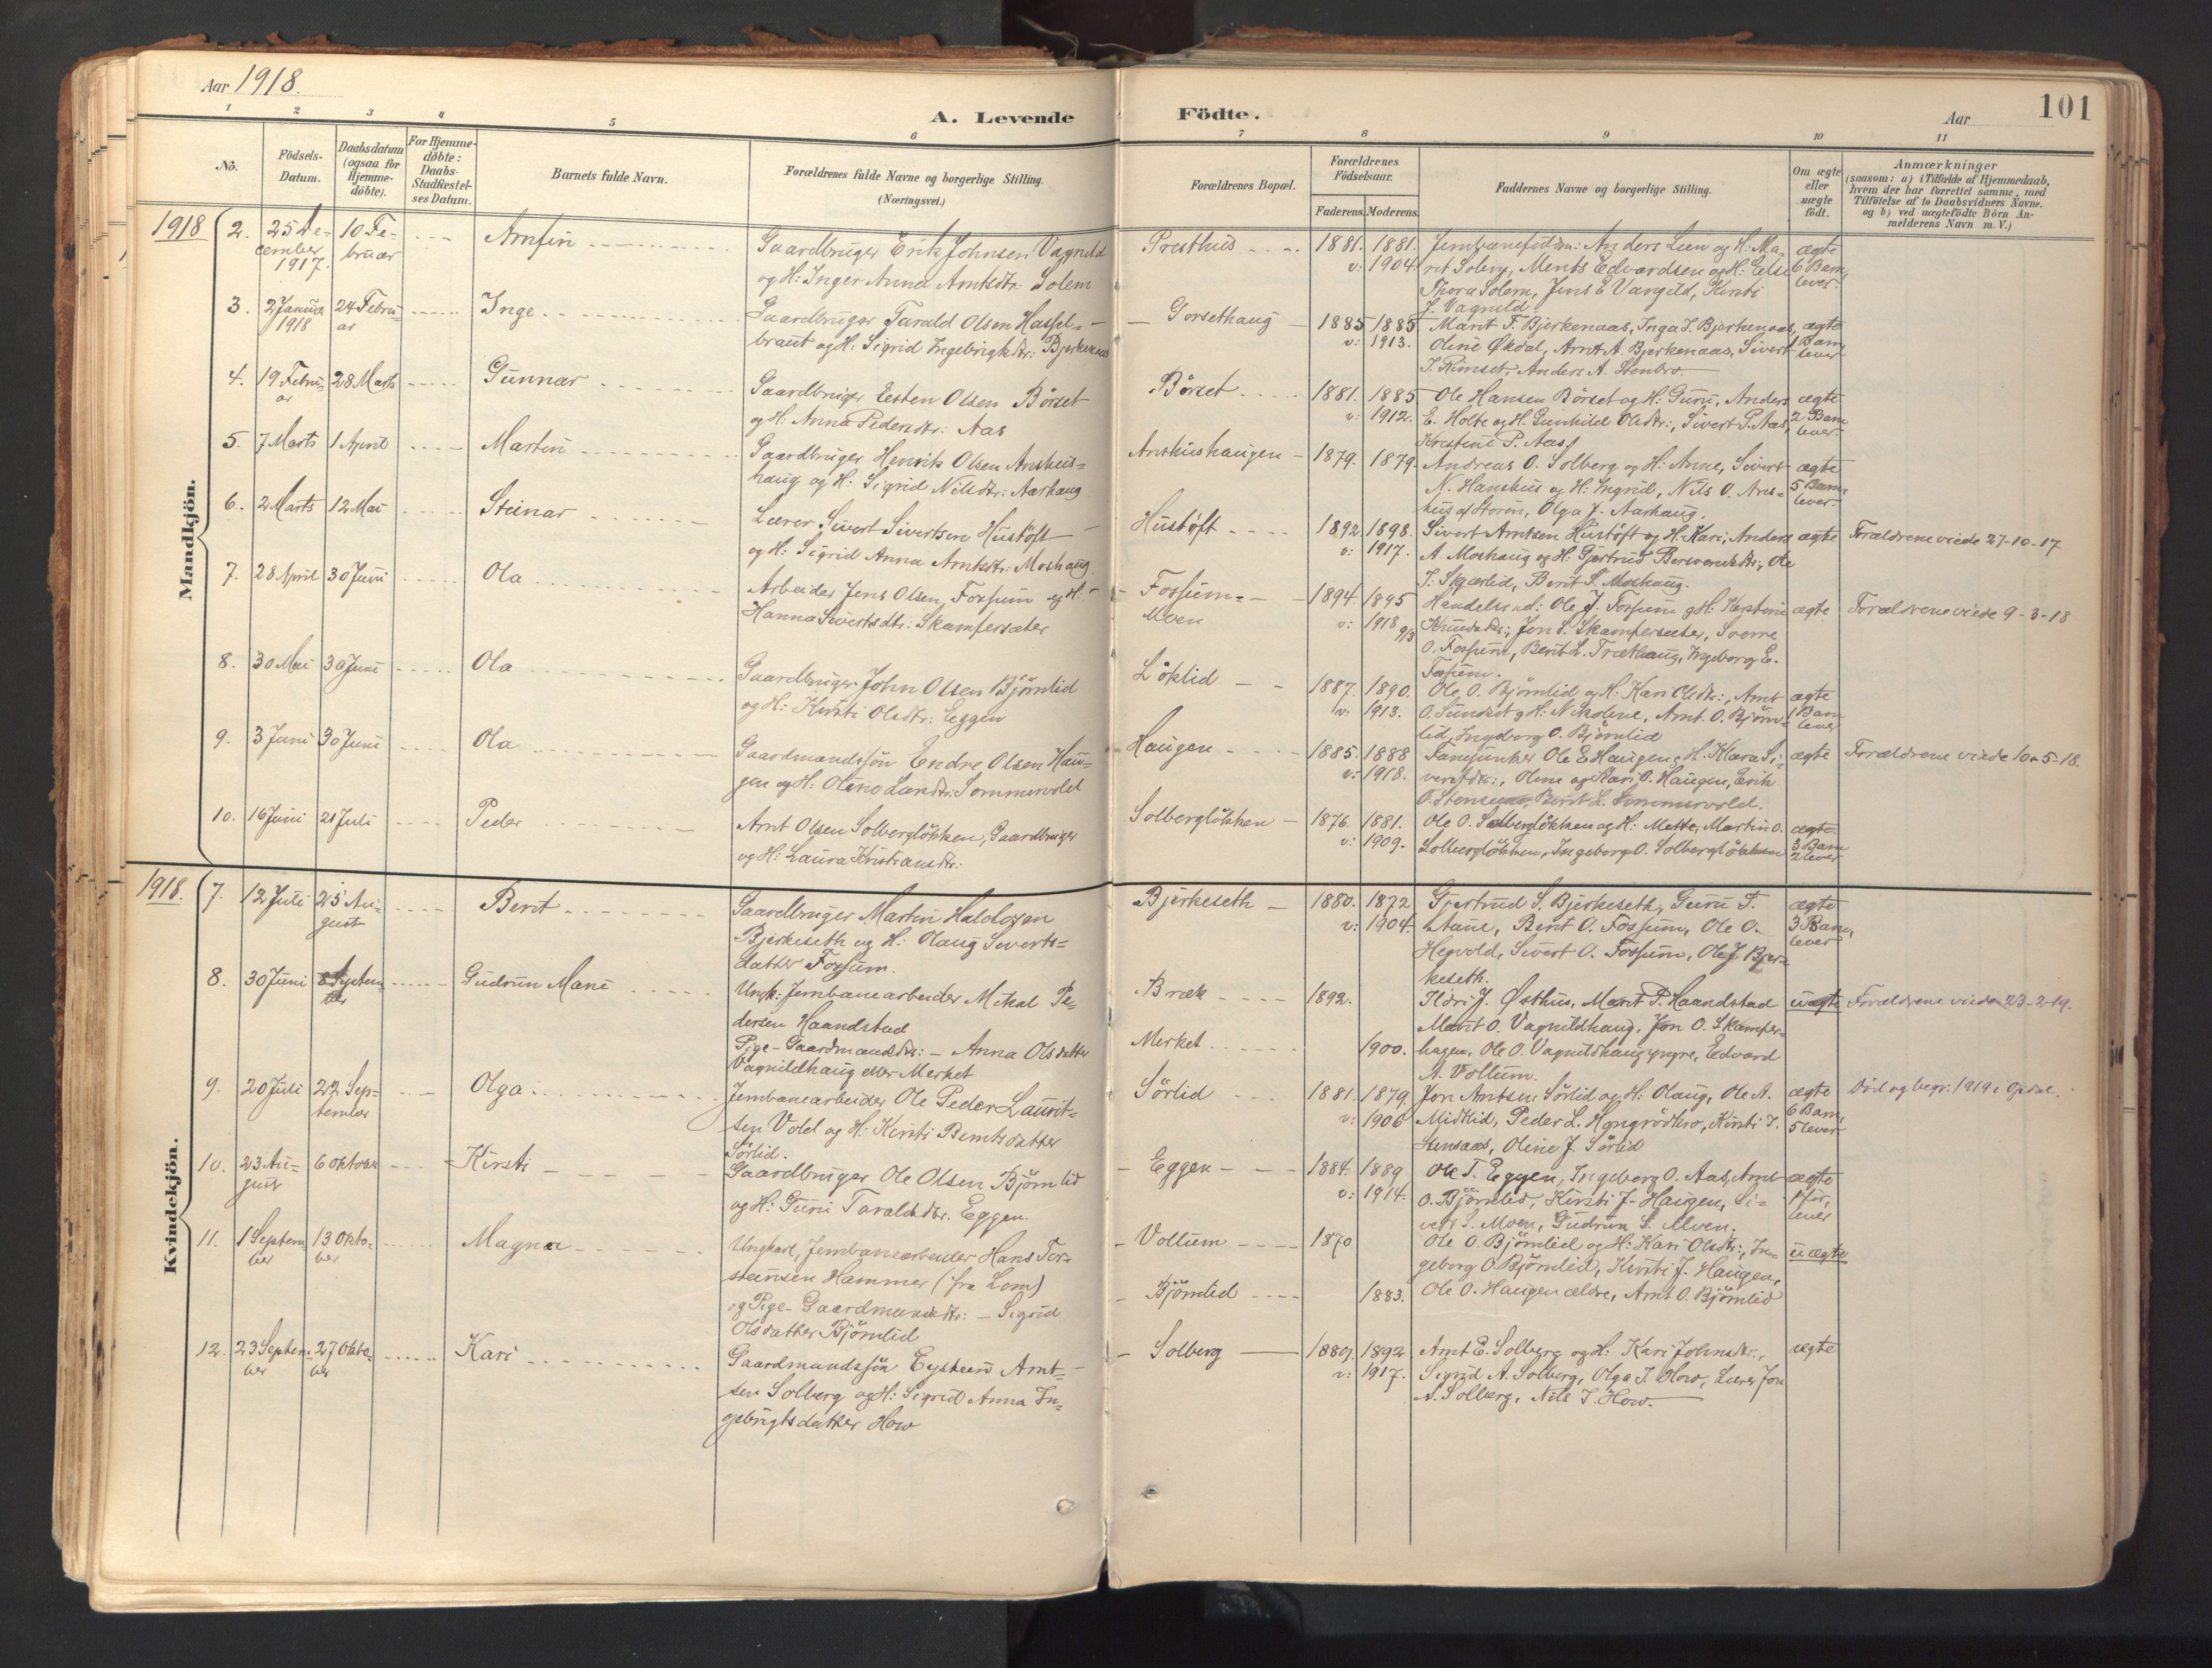 Aar 1918.
A. Levende
Födte.
Aar
101
1 2 3 4 5 6 7 8 9 10 11
No.
Födsels-
Datum.
Daabsdatum
(ogsaa for
Hjemme-
döbte).
For Hjemme-
döbte:
Daabs-
Stadfæstel-
ses Datum.
Barnets fulde Navn.
Forældrenes fulde Navne og borgerlige Stilling.
(Næringsvei.)
Forældrenes Bopæl.
Forældrenes
Födselsaar.
Faderens. Moderens.
Faddernes Navne og borgerlige Stilling.
Om ægte
eller
uægte
födt.
Anmærkninger
(saasom: a) i Tilfælde af Hjemmedaab,
hvem der har forrettet samme, med
Tilföielse af to Daabsvidners Navne.
og b) ved uægtefödte Börn An-
melderens Navn m. V.)
Mandkjön.
1918
2. 25 De-
cember
1917.
10 Fe-
bruar
Arnfin
Gaardbruger Erik Johnsen Vagnild
og H: Inger Anna Arntsdtr: Solem
Presthus
1881. 1881.
v: 1904.
Anders Leen og H: Ma-
rit Solem, Ments Edvardsen og H: Else
Thora Solem, Jens E Vangild, Kirsti
J. Vagnild
ægte
6 Barn,
lever.
3. 2 Januar
1918
24 Febru-
ar
Inge
Gaardbruger Tarald Olsen Hassel-
braut og H: Sigrid Ingebrigtsdtr: Bjerkenaas
Gorsethaug
1885 1885
v: 1913.
Marit T. Bjerkenaas, Inga I. Bjerkenaas,
Oline Økdal, Arnt A. Bjerkenaas, Sivert
I. Rimset, Anders A. Stenbro.
ægte
1 Barn
lever
4. 19 Febru-
ar
28 Marts
Gunnar
Gaardbruger Esten Olsen Börset
og H: Anna Pedersdtr: Aas
Börset
1881. 1885
v: 1912.
Ole Hansen Börset og H: Guru, Anders
E. Holte og H. Gunhild Olsdtr:, Sivert P. Aas,
Kristine P. Aas.
ægte
2 Barn
lever.
5. 7 Marts
1 April
Martin
Gaardbruger Henrik Olsen Anshus-
haug og H: Sigrid Nilsdtr: Aarhaug
Anshushaugen
1879. 1879.
Andreas O. Solberg og H: Anne, Sivert
N. Hanshus og H: Ingrid, Nils O. Ans-
hus af Stören, Olga J. Aarhaug.
ægte
5 Barn,
lever.
6. 2 Marts
12 Mai
Steinar
Lærer Sivert Sivertsen Hustöft
og H: Sigrid Anna Arntsdtr: Moshaug
Hustöft
1892. 1898.
v: 1917.
Sivert Arntsen Hustöft og H. Kari, Anders
A. Moshaug og H. Gjertrud Bersvendsdtr:, Ole
I. Skjærlid, Berit S. Moshaug.
ægte
Forældrene viede 27-10-17
7. 28 April
30 Juni
Ola
Arbeider Jens Olsen Fossum og H:
Hanna Sivertsdtr: Skamfersæter
Fossum-
Moen
1894. 1895
v: 1918 9/3
Handelsmd: Ole J. Fossum og H: Kirstine
Knudsdtr:, Jon S. Skamfersæter, Sverre
O. Fossum, Berit L. Træthaug, Ingeborg E.
Fossum.
ægte
Forældrene viede 9-3-18
8. 30 Mai
30 Juni
Ola
Gaardbruger John Olsen Björnlid
og H: Kirsti Olsdtr: Eggen
Löklid
1887. 1890.
v: 1913.
Ole O. Björnlid og H: Kari Olsdtr:, Arnt
O. Sundset og H: Nikoline, Arnt O. Björn-
lid, Ingeborg O. Björnlid
ægte
1 Barn
lever
9. 3 Juni
30 Juni
Ola
Gaardmandssön Endre Olsen Hau-
gen og H: Oline Larsdtr: Sommervold
Haugen
1885. 1888
v: 1918.
Fanejunker Ole E Haugen, H. Klara Si-
vertsdtr:, Oline og Kari O. Haugen, Erik
O. Stensaas, Berit L. Sommervold.
ægte
Forældrene viede 10-5-18.
10. 16 Juni
21 Juli
Peder
Arnt Olsen Solberglökken, Gaardbruger
og H: Laura Kristiansdtr:
Solberglökken
1876. 1881.
v: 1909.
Ole O. Solberglökken og H: Mette, Martin O.
Solberglökken, Ingeborg O. Solberglökken
ægte.
3 Barn
2 lever
Kvindekjön.
1918.
7. 12 Juli
25 Au-
gust
Berit
Gaardbruger Martin Haldosen
Bjerkeseth og H: Olaug Siverts-
datter Fossum.
Bjerkeseth
1880. 1872
v: 1904.
Gjertrud S. Bjerkeseth, Guru T.
Staue, Berit O. Fossum, Ole O.
Hegvold, Sivert O. Fossum, Ole J. Bjer-
keseth.
ægte
3 Barn,
lever
8. 30 Juni
8 Septem-
ber
Gudrun Marie
Ungk: Jernbanearbeider Mikal Pe-
dersen Haandstad
Pige-Gaardmandsdtr: - Anna Olsdatter
Vagnildhaug eller Merket
Bræk
Merket
1892.
1900.
Ildri J. Østhus, Marit P. Haandstad
Marit O. Vagnildhaug, Jon O. Skamfer-
hagen, Ole O. Vagnildhaug yngre, Edvard
A. Vollum.
uægte
Forældrene viede 23-2-19.
9. 20 Juli
22 Sep-
tember
Olga
Jernbanearbeider Ole Peder Laurit-
sen Vold og H: Kirsti Berntsdatter
Sörlid.
Sörlid
1881. 1879.
v: 1906
Jon Arntsen Sörlid og H: Olaug, Ole A.
Midtlid, Peder L. Hongrödbro, Kirsti I.
Stensaas, Oline J. Sörlid
ægte
6 Barn,
5 lever
Död og begr. 1919 i Opdal.
10. 23 Au-
gust
6 Oktober
Kirsti
Gaardbruger Ole Olsen Björnlid
og H: Guru Taraldsdtr. Eggen
Eggen
1884. 1889
v: 1914.
Ole T. Eggen, Ingeborg O. Aas, Arnt
O. Björnlid, Kirsti J. Haugen, Si-
vert S. Moen, Gudrun S. Moen.
ægte
1 för,
lever
11. 1 Septem-
ber
13 Okto-
ber
Magna
Ungkarl, Jernbanearbeider Hans Tor-
steinsen Hammer (fra Lom)
og Pige-Gaardmandsdtr: - Sigrid
Olsdatter Björnlid
Vollum
Björnlid
1870
1883.
Ole O. Björnlid og H: Kari Olsdtr:, In-
geborg O. Björnlid, Kirsti J. Haugen,
Ole O. Haugen ældre, Arnt O. Björnlid
uægte
12. 23 Septem-
ber
27 Okto-
ber
Kari
Gaardmandssön Eystein Arnt-
sen Solberg og H: Sigrid Anna In-
gebrigtsdatter How
Solberg
1889. 1892
v: 1917.
Arnt E. Solberg og H: Kari Johnsdtr:,
Sigrid A. Solberg, Olga I. How, Lærer Jon
A. Solberg, Nils I. How.
ægte